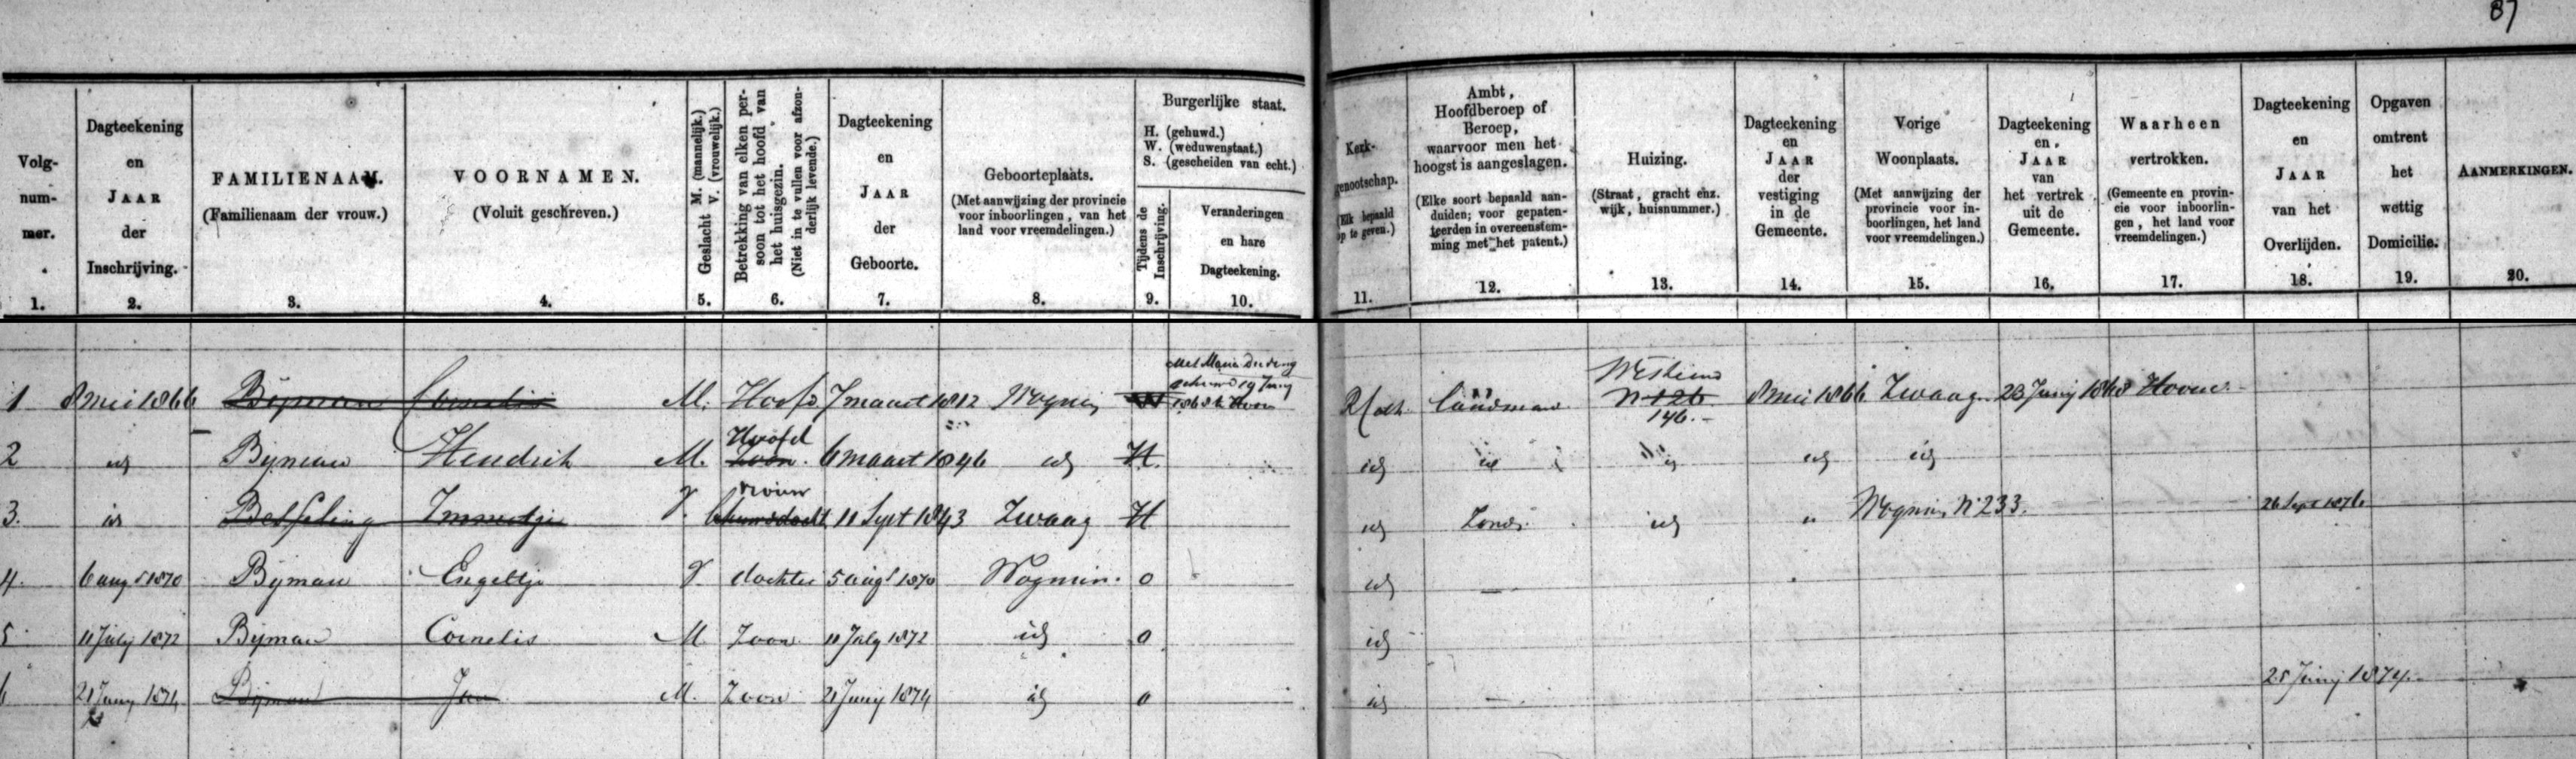 87
Volg-
num-
mer.
1.
Dagteekening
en
JAAR
der
Inschrijving.
2.
FAMILIENAAM.
(Familienaam der vrouw.)
3.
VOORNAMEN.
(Voluit geschreven.)
4.
Geslacht M. (mannelijk.)
V. (vrouwelijk.)
5.
Betrekking van elken per-
soon tot het hoofd van
het huisgezin.
(Niet in te vullen voor afzon-
derlijk levende.)
6.
Dagteekening
en
JAAR
der
Geboorte.
7.
Geboorteplaats.
(Met aanwijzing der provincie
voor inboorlingen, van het
land voor vreemdelingen.)
8.
Burgerlijke staat.
H. (gehuwd.)
W. (weduwenstaat.)
S. (gescheiden van echt.)
Tijdens de
Inschrijving.
9.
Veranderingen
en hare
Dagteekening.
10.
Kerk-
genootschap.
(Elk bepaald
op te geven.)
11.
Ambt,
Hoofdberoep of
Beroep,
waarvoor men het
hoogst is aangeslagen.
(Elke soort bepaald aan-
duiden; voor gepaten-
teerden in overeenstem-
ming met het patent.)
12.
Huizing.
(Straat, gracht enz.
wijk, huisnummer.)
13.
Dagteekening
en
JAAR
der
vestiging
in de
Gemeente.
14.
Vorige
Woonplaats.
(Met aanwijzing der
provincie voor in-
boorlingen, het land
voor vreemdelingen.)
15.
Dagteekening
en
JAAR
van
het vertrek
uit de
Gemeente.
16.
Waarheen
vertrokken.
(Gemeente en provin-
cie voor inboorlin-
gen, het land voor
vreemdelingen.)
17.
Dagteekening
en
JAAR
van het
Overlijden.
18.
Opgaven
omtrent
het
wettig
Domicilie.
19.
AANMERKINGEN.
20.
1 8 mei 1866 Bijman Cornelis M. Hoofd 7 maart 1812 Wognum W
R Cath. landman Westeind N 126 146. 8 mei 1866 Zwaag 23 Junij 1868 Hoorn
2 id Bijman Hendrik M. Hoofd Zoon. 6 maart 1846 id H.
id id id id id
3. id Besseling Immetje V. vrouw 11 Sept 1843 Zwaag H
id Zonder id " Wognum N 233. 26 Sept 1876.
4. 6 aug 1870 Bijman Engeltje V dochter 5 aug 1870 Wognum. 0
id —
5. 11 July 1872 Bijman Cornelis M Zoon 11 July 1872 id 0
id
6 21 Juny 1874 Bijman Jan M. Zoon 21 Junij 1874 id 0
id — 25 Junij 1874.